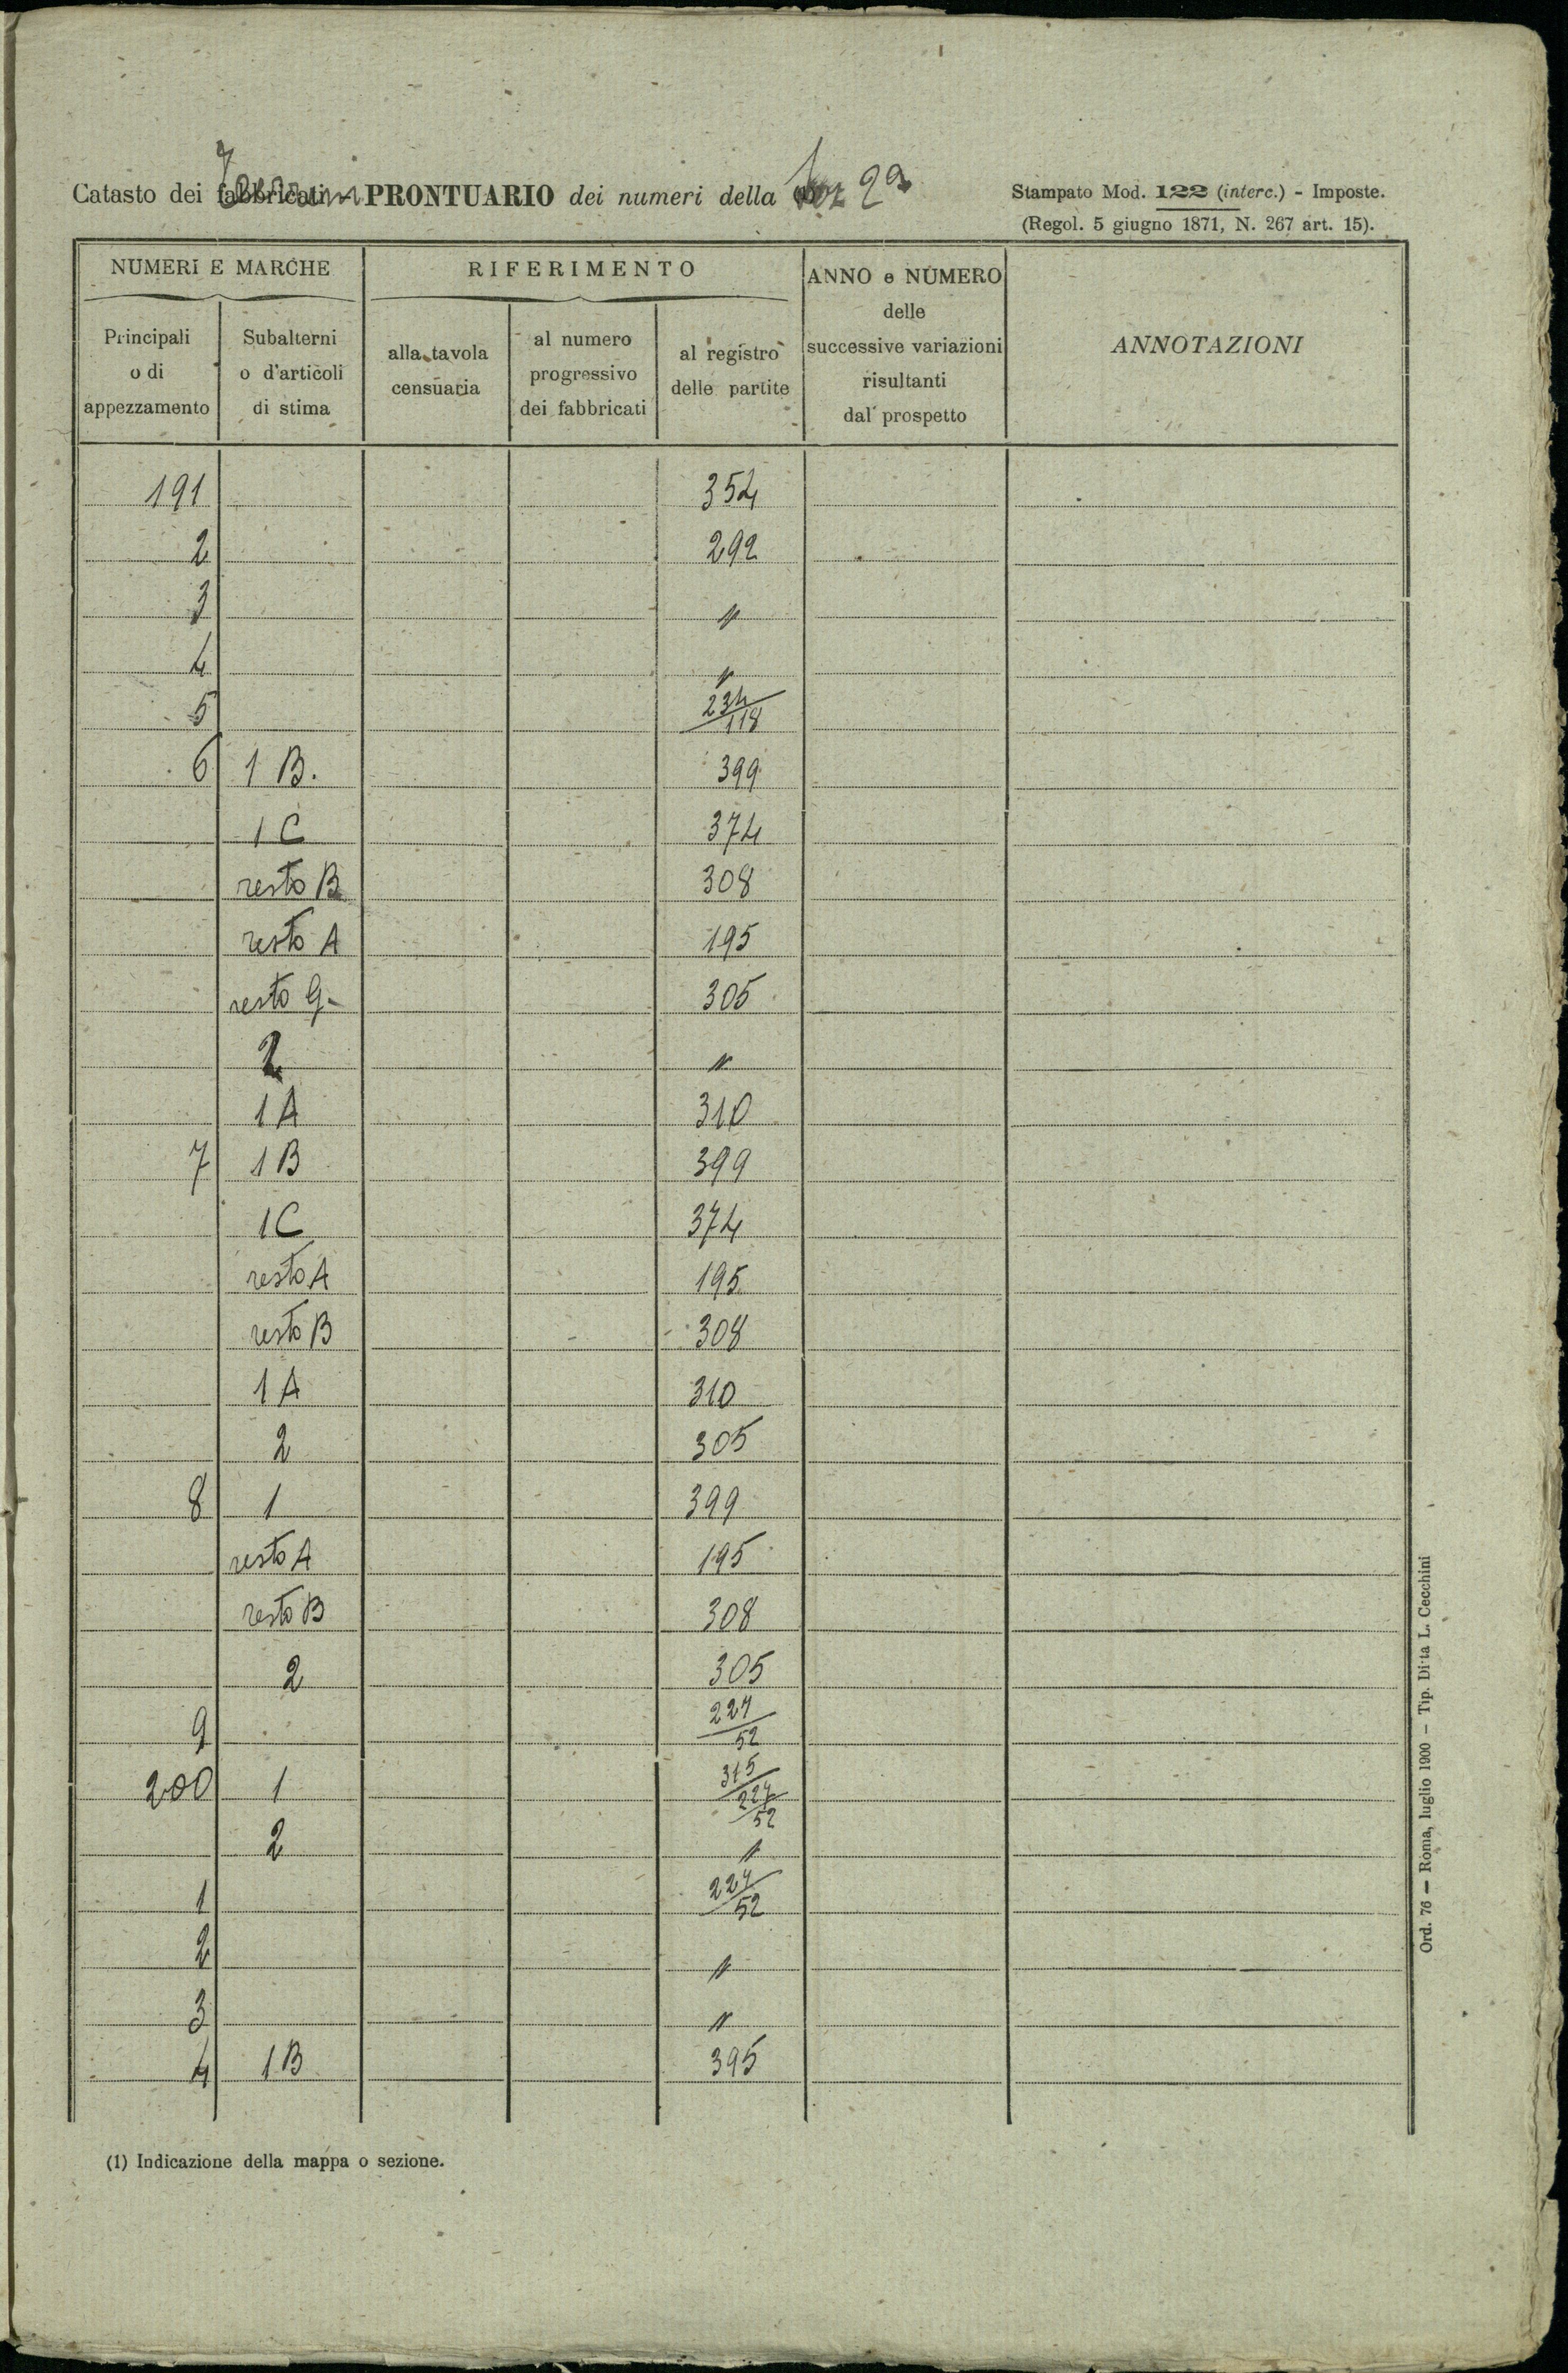 Catasto dei fabbricati - PRONTUARIO dei numeri della Sez 2a
Terreni
Stampato Mod. 122 (interc.) - Imposte.
(Regol. 5 giugno 1871, N. 267 art. 15).
NUMERI E MARCHE RIFERIMENTO ANNO e NUMERO delle successive variazioni risultanti dal prospetto ANNOTAZIONI
Principali o di appezzamento Subalterni o d'articoli di stima alla tavola censuaria al numero progressivo dei fabbricati al registro delle partite
191 354
2 292
3 "
4 "
5 234/118
6 1 B. 399
1 C 374
resto B 308
resto A 195
resto G- 305
2 "
1 A 310
7 1 B 399
1 C 374
resto A 195
resto B 308
1 A 310
2 305
8 1 399
resto A 195
resto B 308
2 305
9 227/52
200 1 315/227/52
2 "
1 227/52
2 "
3 "
4 1 B 395
(1) Indicazione della mappa o sezione.
Ord. 76 — Roma, luglio 1900 — Tip. Ditta L. Cecchini